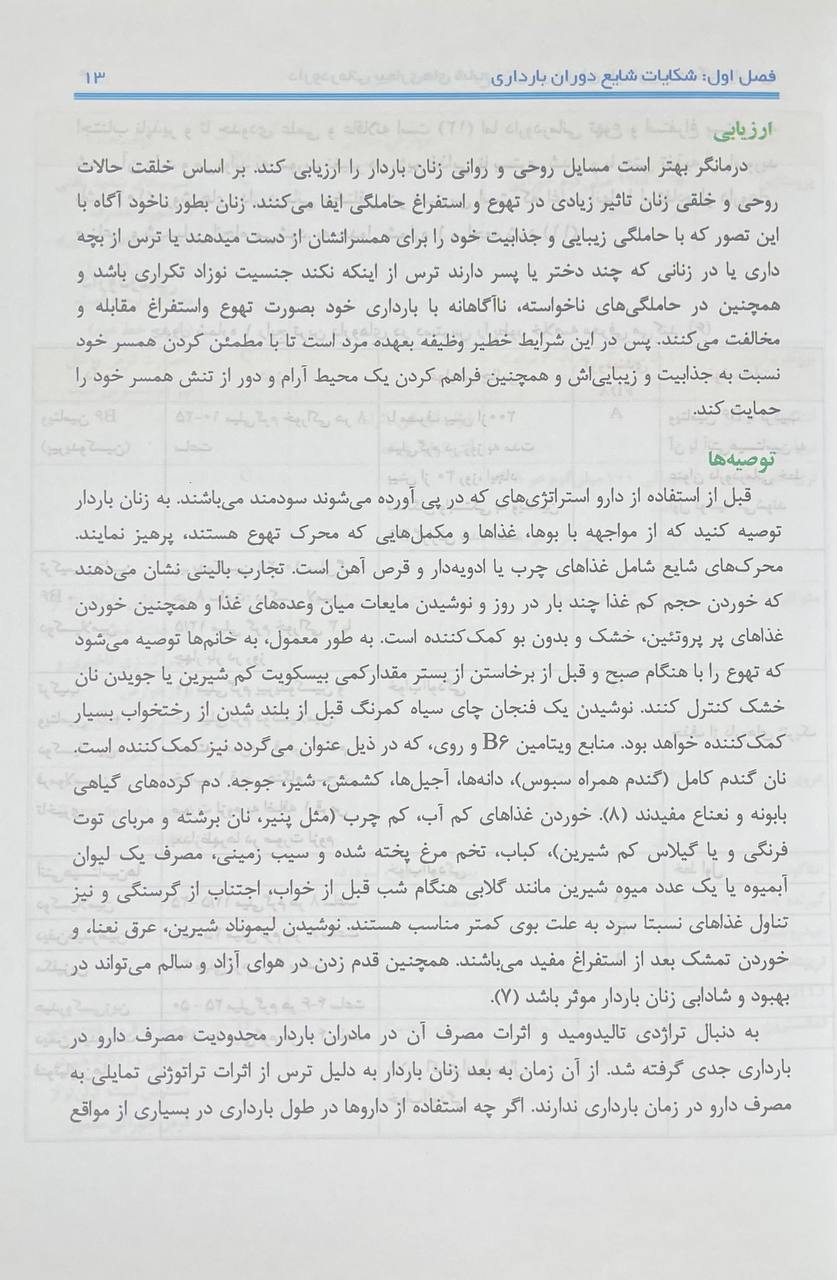 فصل اول: شکایات شایع دوران بارداری ۱۳
ارزیابی
درمانگر بهتر است مسایل روحی و روانی زنان باردار را ارزیابی کند. بر اساس خلقت حالات
روحی و خلقی زنان تاثیر زیادی در تهوع و استفراغ حاملگی ایفا می‌کنند. زنان بطور ناخود آگاه با
این تصور که با حاملگی زیبایی و جذابیت خود را برای همسرانشان از دست میدهند یا ترس از بچه
داری یا در زنانی که چند دختر یا پسر دارند ترس از اینکه نکند جنسیت نوزاد تکراری باشد و
همچنین در حاملگی‌های ناخواسته، ناآگاهانه با بارداری خود بصورت تهوع واستفراغ مقابله و
مخالفت می‌کنند. پس در این شرایط خطیر وظیفه بعهده مرد است تا با مطمئن کردن همسر خود
نسبت به جذابیت و زیبایی‌اش و همچنین فراهم کردن یک محیط آرام و دور از تنش همسر خود را
حمایت کند.
توصیه‌ها
قبل از استفاده از دارو استراتژی‌های که در پی آورده می‌شوند سودمند می‌باشند. به زنان باردار
توصیه کنید که از مواجهه با بوها، غذاها و مکمل‌هایی که محرک تهوع هستند، پرهیز نمایند.
محرک‌های شایع شامل غذاهای چرب یا ادویه‌دار و قرص آهن است. تجارب بالینی نشان می‌دهند
که خوردن حجم کم غذا چند بار در روز و نوشیدن مایعات میان وعده‌های غذا و همچنین خوردن
غذاهای پر پروتئین، خشک و بدون بو کمک‌کننده است. به طور معمول، به خانم‌ها توصیه می‌شود
که تهوع را با هنگام صبح و قبل از برخاستن از بستر مقدارکمی بیسکویت کم شیرین یا جویدن نان
خشک کنترل کنند. نوشیدن یک فنجان چای سیاه کمرنگ قبل از بلند شدن از رختخواب بسیار
کمک‌کننده خواهد بود. منابع ویتامین B۶ و روی، که در ذیل عنوان می‌گردد نیز کمک‌کننده است.
نان گندم کامل (گندم همراه سبوس)، دانه‌ها، آجیل‌ها، کشمش، شیر، جوجه. دم کرده‌های گیاهی
بابونه و نعناع مفیدند (۸). خوردن غذاهای کم آب، کم چرب (مثل پنیر، نان برشته و مربای توت
فرنگی و یا گیلاس کم شیرین)، کباب، تخم مرغ پخته شده و سیب زمینی، مصرف یک لیوان
آبمیوه یا یک عدد میوه شیرین مانند گلابی هنگام شب قبل از خواب، اجتناب از گرسنگی و نیز
تناول غذاهای نسبتا سرد به علت بوی کمتر مناسب هستند. نوشیدن لیموناد شیرین، عرق نعنا، و
خوردن تمشک بعد از استفراغ مفید می‌باشند. همچنین قدم زدن در هوای آزاد و سالم می‌تواند در
بهبود و شادابی زنان باردار موثر باشد (۷).
به دنبال تراژدی تالیدومید و اثرات مصرف آن در مادران باردار محدودیت مصرف دارو در
بارداری جدی گرفته شد. از آن زمان به بعد زنان باردار به دلیل ترس از اثرات تراتوژنی تمایلی به
مصرف دارو در زمان بارداری ندارند. اگر چه استفاده از داروها در طول بارداری در بسیاری از مواقع